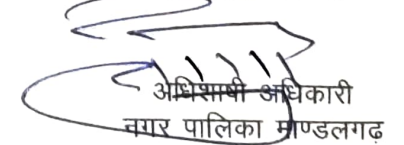 अधिशाषी अधिकारी
नगर पालिका माण्डलगढ़